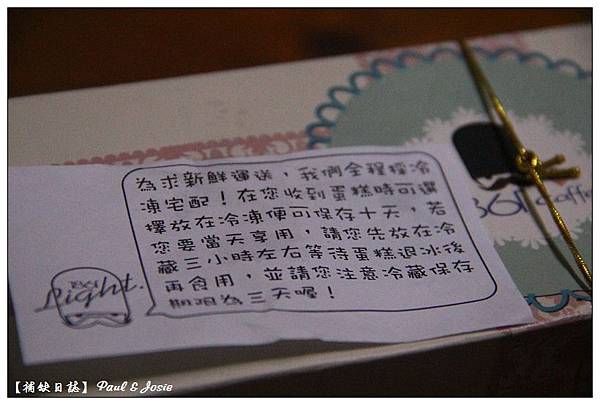 為求新鮮運送，我們全程採冷
凍宅配！在您收到蛋糕時可選
擇放在冷凍便可保存十天，若
您要當天享用，請您先放在冷
藏三小時左右等待蛋糕退冰後
再食用，並請您注意冷藏保存
期限為三天喔！
Right.
【補缺日誌】 Paul & Josie